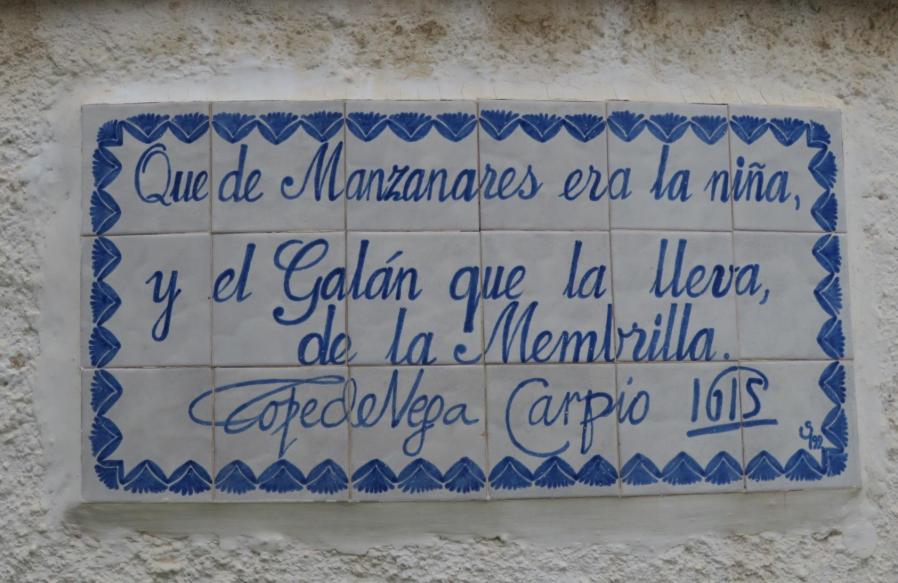 Que de Manzanares era la niña,
y el Galán que la lleva,
de la Membrilla.
Lope de Vega Carpio 1615